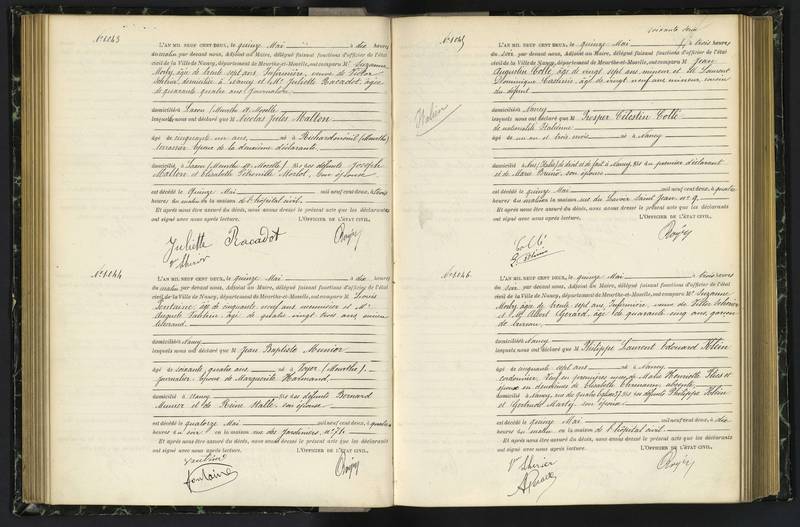 N° 1043
L'AN MIL NEUF CENT DEUX, le quinze Mai à dix heures
du matin par devant nous, Adjoint au Maire, délégué faisant fonctions d'officier de l'état
civil de la Ville de Nancy, département de Meurthe-et-Moselle, ont comparu Me Suzanne
Morby, âgée de trente sept ans, Infirmière, veuve de Victor
domiciliée à Nancy et Me Juliette Racadot, âgée
de quarante quatre ans, journalière
domiciliée à Laxou (Meurthe et Moselle)
lesquels nous ont déclaré que M Nicolas Jules Matton
âgé de cinquante un ans, né à Richardménil (Meurthe)
terrassier époux de la deuxième déclarante
domicilié à Laxou (Meurthe et Moselle), fils des défunts Joseph
Matton et Elisabeth Pétronille Morlot, son épouse
est décédé le quinze Mai mil neuf cent deux, à trois
heures du matin en la maison de l'hôpital civil.
Et après nous être assuré du décès, nous avons dressé le présent acte que les déclarants
ont signé avec nous après lecture. L'OFFICIER DE L'ÉTAT CIVIL,
Juliette Racadot
N° 1044
L'AN MIL NEUF CENT DEUX, le quinze Mai à dix heures
du matin par devant nous, Adjoint au Maire, délégué faisant fonctions d'officier de l'état
civil de la Ville de Nancy, département de Meurthe-et-Moselle, ont comparu M Louis
Fontaine, âgé de cinquante neuf ans menuisier et M
Auguste âgé de quatre vingt trois ans, ancien
domiciliés à Nancy
lesquels nous ont déclaré que M Jean Baptiste Munier
âgé de soixante quatre ans né à Foyer (Meurthe)
journalier, époux de Marguerite Harmand
domicilié à Nancy fils des défunts Bernard
Munier et de Reine Halle, son épouse
est décédé le quatorze Mai mil neuf cent deux, à quatre
heures du soir en la maison rue des Jardiniers, n° 71
Et après nous être assuré du décès, nous avons dressé le présent acte que les déclarants
ont signé avec nous après lecture. L'OFFICIER DE L'ÉTAT CIVIL,
Fontaine
N° 1045
L'AN MIL NEUF CENT DEUX, le quinze Mai à trois heures
du soir par devant nous, Adjoint au Maire, délégué faisant fonctions d'officier de l'état
civil de la Ville de Nancy, département de Meurthe-et-Moselle, ont comparu M Jean
Augustin Collé, âgé de vingt sept ans, mineur et M Laurent
Dominique âgé de vingt neuf ans mineur, cousin
du défunt
Italien
domiciliés à Nancy
lesquels nous ont déclaré que M Prosper Célestin Collé
de nationalité Italienne
âgé de un an et trois mois né à Nancy
domicilié à (Italie) de droit et de fait à Nancy, fils du premier déclarant
et de Marie Bruno, son épouse
est décédé le quinze Mai mil neuf cent deux, à quatre
heures du matin en la maison rue du Lavoir Saint Jean n° 9
Et après nous être assuré du décès, nous avons dressé le présent acte que les déclarants
ont signé avec nous après lecture. L'OFFICIER DE L'ÉTAT CIVIL,
Collé
N° 1046
L'AN MIL NEUF CENT DEUX, le quinze Mai à trois heures
du soir par devant nous, Adjoint au Maire, délégué faisant fonctions d'officier de l'état
civil de la Ville de Nancy, département de Meurthe-et-Moselle, ont comparu Me Suzanne
Morby, âgée de trente sept ans, Infirmière, veuve de Victor
et M Albert Gérard, âgé de quarante cinq ans, garçon
de bureau
domiciliés à Nancy
lesquels nous ont déclaré que M Philippe Laurent Edouard Klein
âgé de cinquante sept ans né à Nancy
cordonnier, veuf en premières noces de Marie Henriette et
époux en deuxièmes de Elisabeth absente
domicilié à Nancy, rue de quatre Eglises 37 fils des défunts Philippe Klein
et Gertrude Marly, son épouse
est décédé le quinze Mai mil neuf cent deux, à dix
heures du matin en la maison de l'hôpital civil
Et après nous être assuré du décès, nous avons dressé le présent acte que les déclarants
ont signé avec nous après lecture. L'OFFICIER DE L'ÉTAT CIVIL,